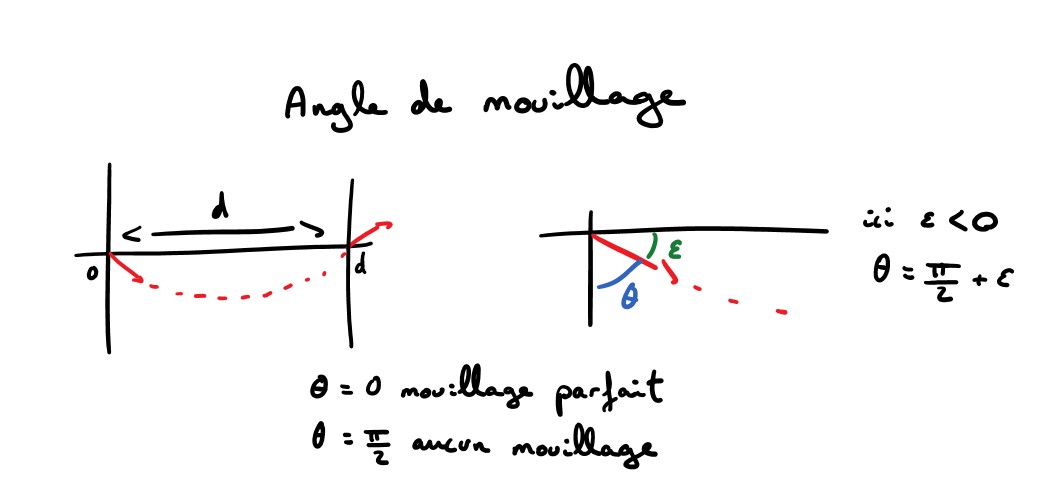 Angle de mouillage
d
0
d
ε
θ
ici ε < 0
θ = π/2 + ε
θ = 0 mouillage parfait
θ = π/2 aucun mouillage